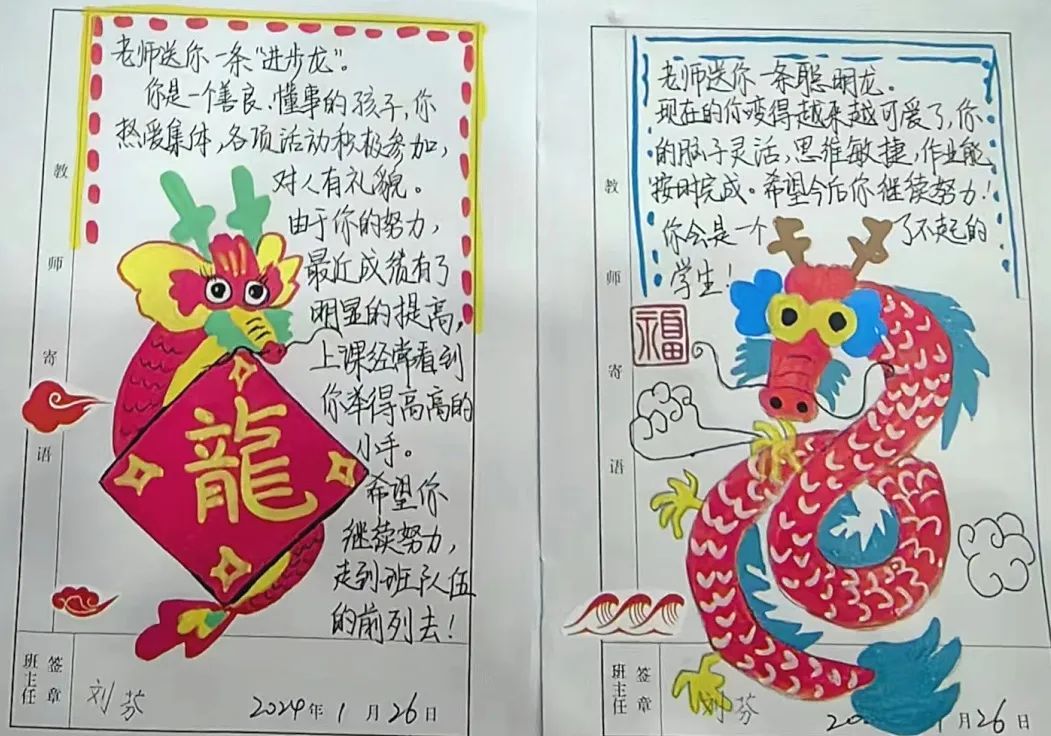 老师送你一条“进步龙”。
你是一个善良、懂事的孩子,你
热爱集体,各项活动积极参加,
对人有礼貌。
由于你的努力,
最近成绩有了
明显的提高,
上课经常看到
你举得高高的
小手。
希望你
继续努力,
走到班队伍
的前列去!
龍
教师寄语
班主任签章
刘芬
2024年1月26日
老师送你一条聪明龙.
现在的你变得越来越可爱了,你
的脑子灵活,思维敏捷,作业能
按时完成。希望今后你继续努力!
你会是一个了不起的
学生!
福
教师寄语
班主任签章
刘芬
月26日